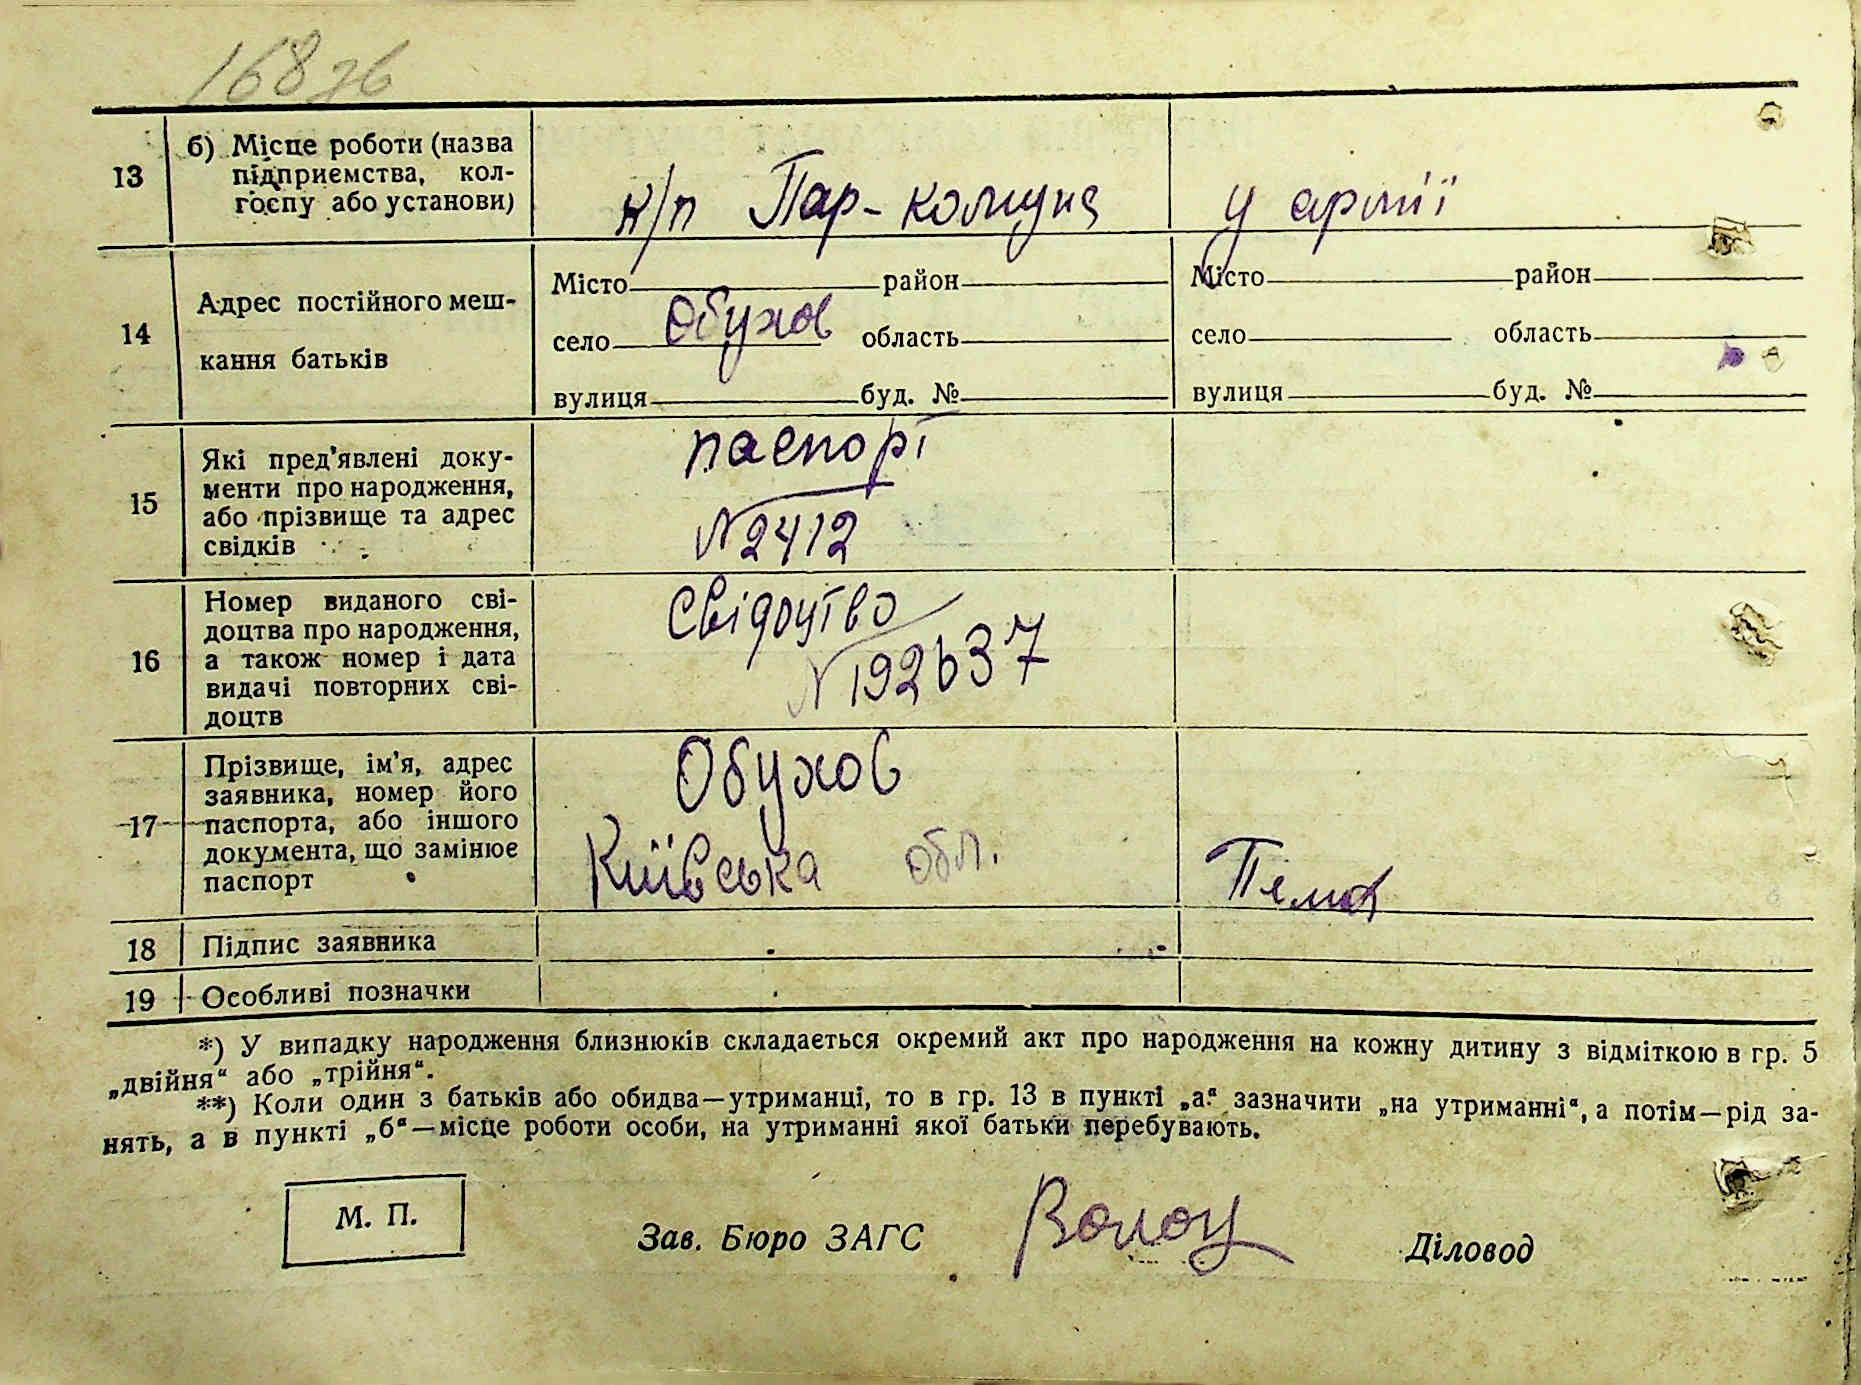 168 зв
13 б) Місце роботи (назва
підприємства, кол-
госпу або установи)
к/п Пар-комуна у армії
14 Адрес постійного меш-
кання батьків
Місто район Місто район
село Обухов область село область
вулиця буд. № вулиця буд. №
15 Які пред'явлені доку-
менти про народження,
або прізвище та адрес
свідків
паспорт
N 2412
16 Номер виданого сві-
доцтва про народження,
а також номер і дата
видачі повторних сві-
доцтв
Свідоцтво
N 192637
17 Прізвище, ім'я, адрес
заявника, номер його
паспорта, або іншого
документа, що замінює
паспорт
Обухов
Київська обл.
18 Підпис заявника
19 Особливі позначки
*) У випадку народження близнюків складається окремий акт про народження на кожну дитину з відміткою в гр. 5
„двійня“ або „трійня“.
**) Коли один з батьків або обидва—утриманці, то в гр. 13 в пункті „а“ зазначити „на утриманні“, а потім—рід за-
нять, а в пункті „б“—місце роботи особи, на утриманні якої батьки перебувають.
М. П.
Зав. Бюро ЗАГС Діловод